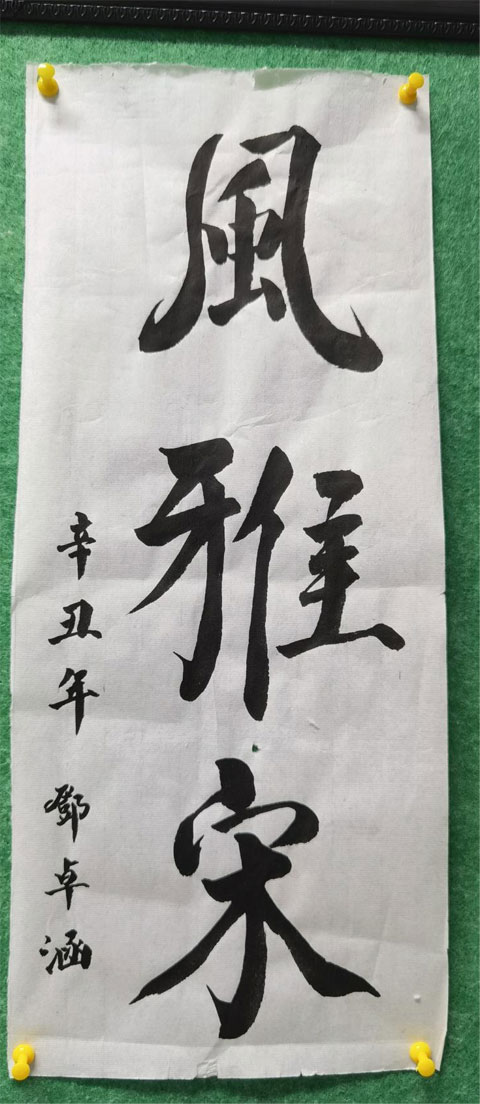 風雅宋
辛丑年 鄧卓涵